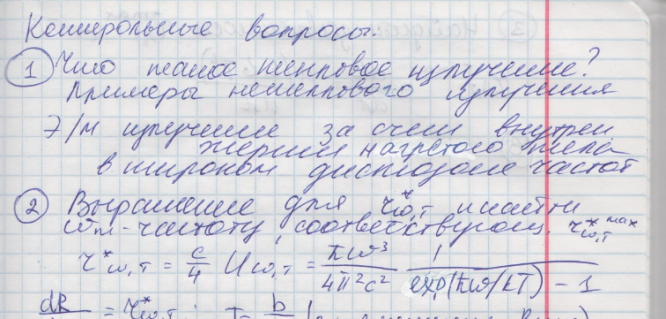 Контрольные вопросы:
① Что такое тепловое излучение?
Примеры нетеплового излучения
Э/м излучение за счет внутрен
энергии нагретого тела
в широком диапазоне частот
② Выражение для r*ω,T и найти
ωm - частоту, соответствующ. r*ω,T max
r*ω,T = c/4 Uω,T = ħω³/4π²c² 1/exp(ħω/kT) - 1
dR = r*ω,T b